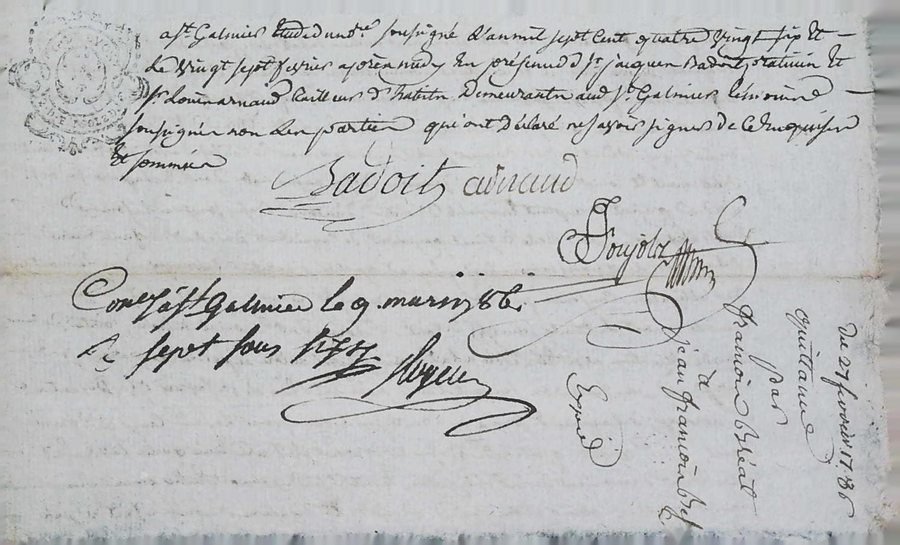 a St. Galmier Etude du no.re soussigné L'an mil sept Cent quatre vingt six Et
Le vingt sept fevrier après midy En présence de Sr. jacques Badoit praticien Et
Sr. Louis arnaud tailleur d'habits Demeurants aud. St. Galmier
soussignés non Les parties qui ont Déclaré ne savoir signer de Ce Enquises
Et sommées
Badoit arnaud
Poujolz
Con.lé à St. Galmier le 9 mars 1786.
R. sept sous six d.
du 27 fevrier 1786
quittance
par
françois Réal
à
jean françois
Expié